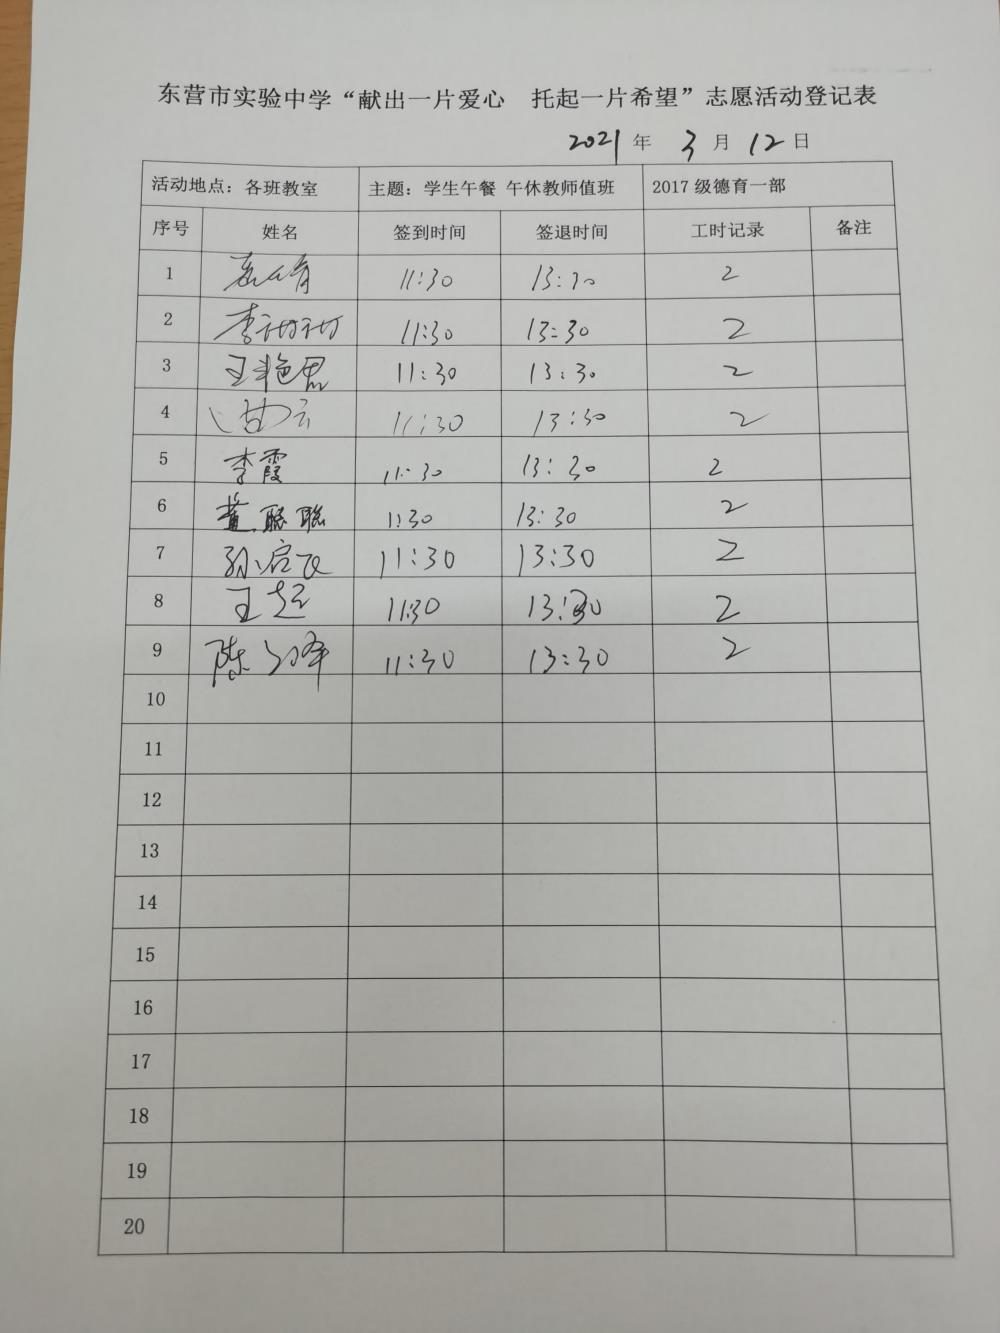 东营市实验中学“献出一片爱心 托起一片希望”志愿活动登记表
2021 年 3 月 12 日
活动地点：各班教室 主题：学生午餐 午休教师值班 2017 级德育一部
序号 姓名 签到时间 签退时间 工时记录 备注
1 11:30 13:30 2
2 李 11:30 13:30 2
3 王艳 11:30 13:30 2
4 11:30 13:30 2
5 李霞 11:30 13:30 2
6 董聪聪 11:30 13:30 2
7 孙启飞 11:30 13:30 2
8 王超 11:30 13:30 2
9 陈 11:30 13:30 2
10
11
12
13
14
15
16
17
18
19
20